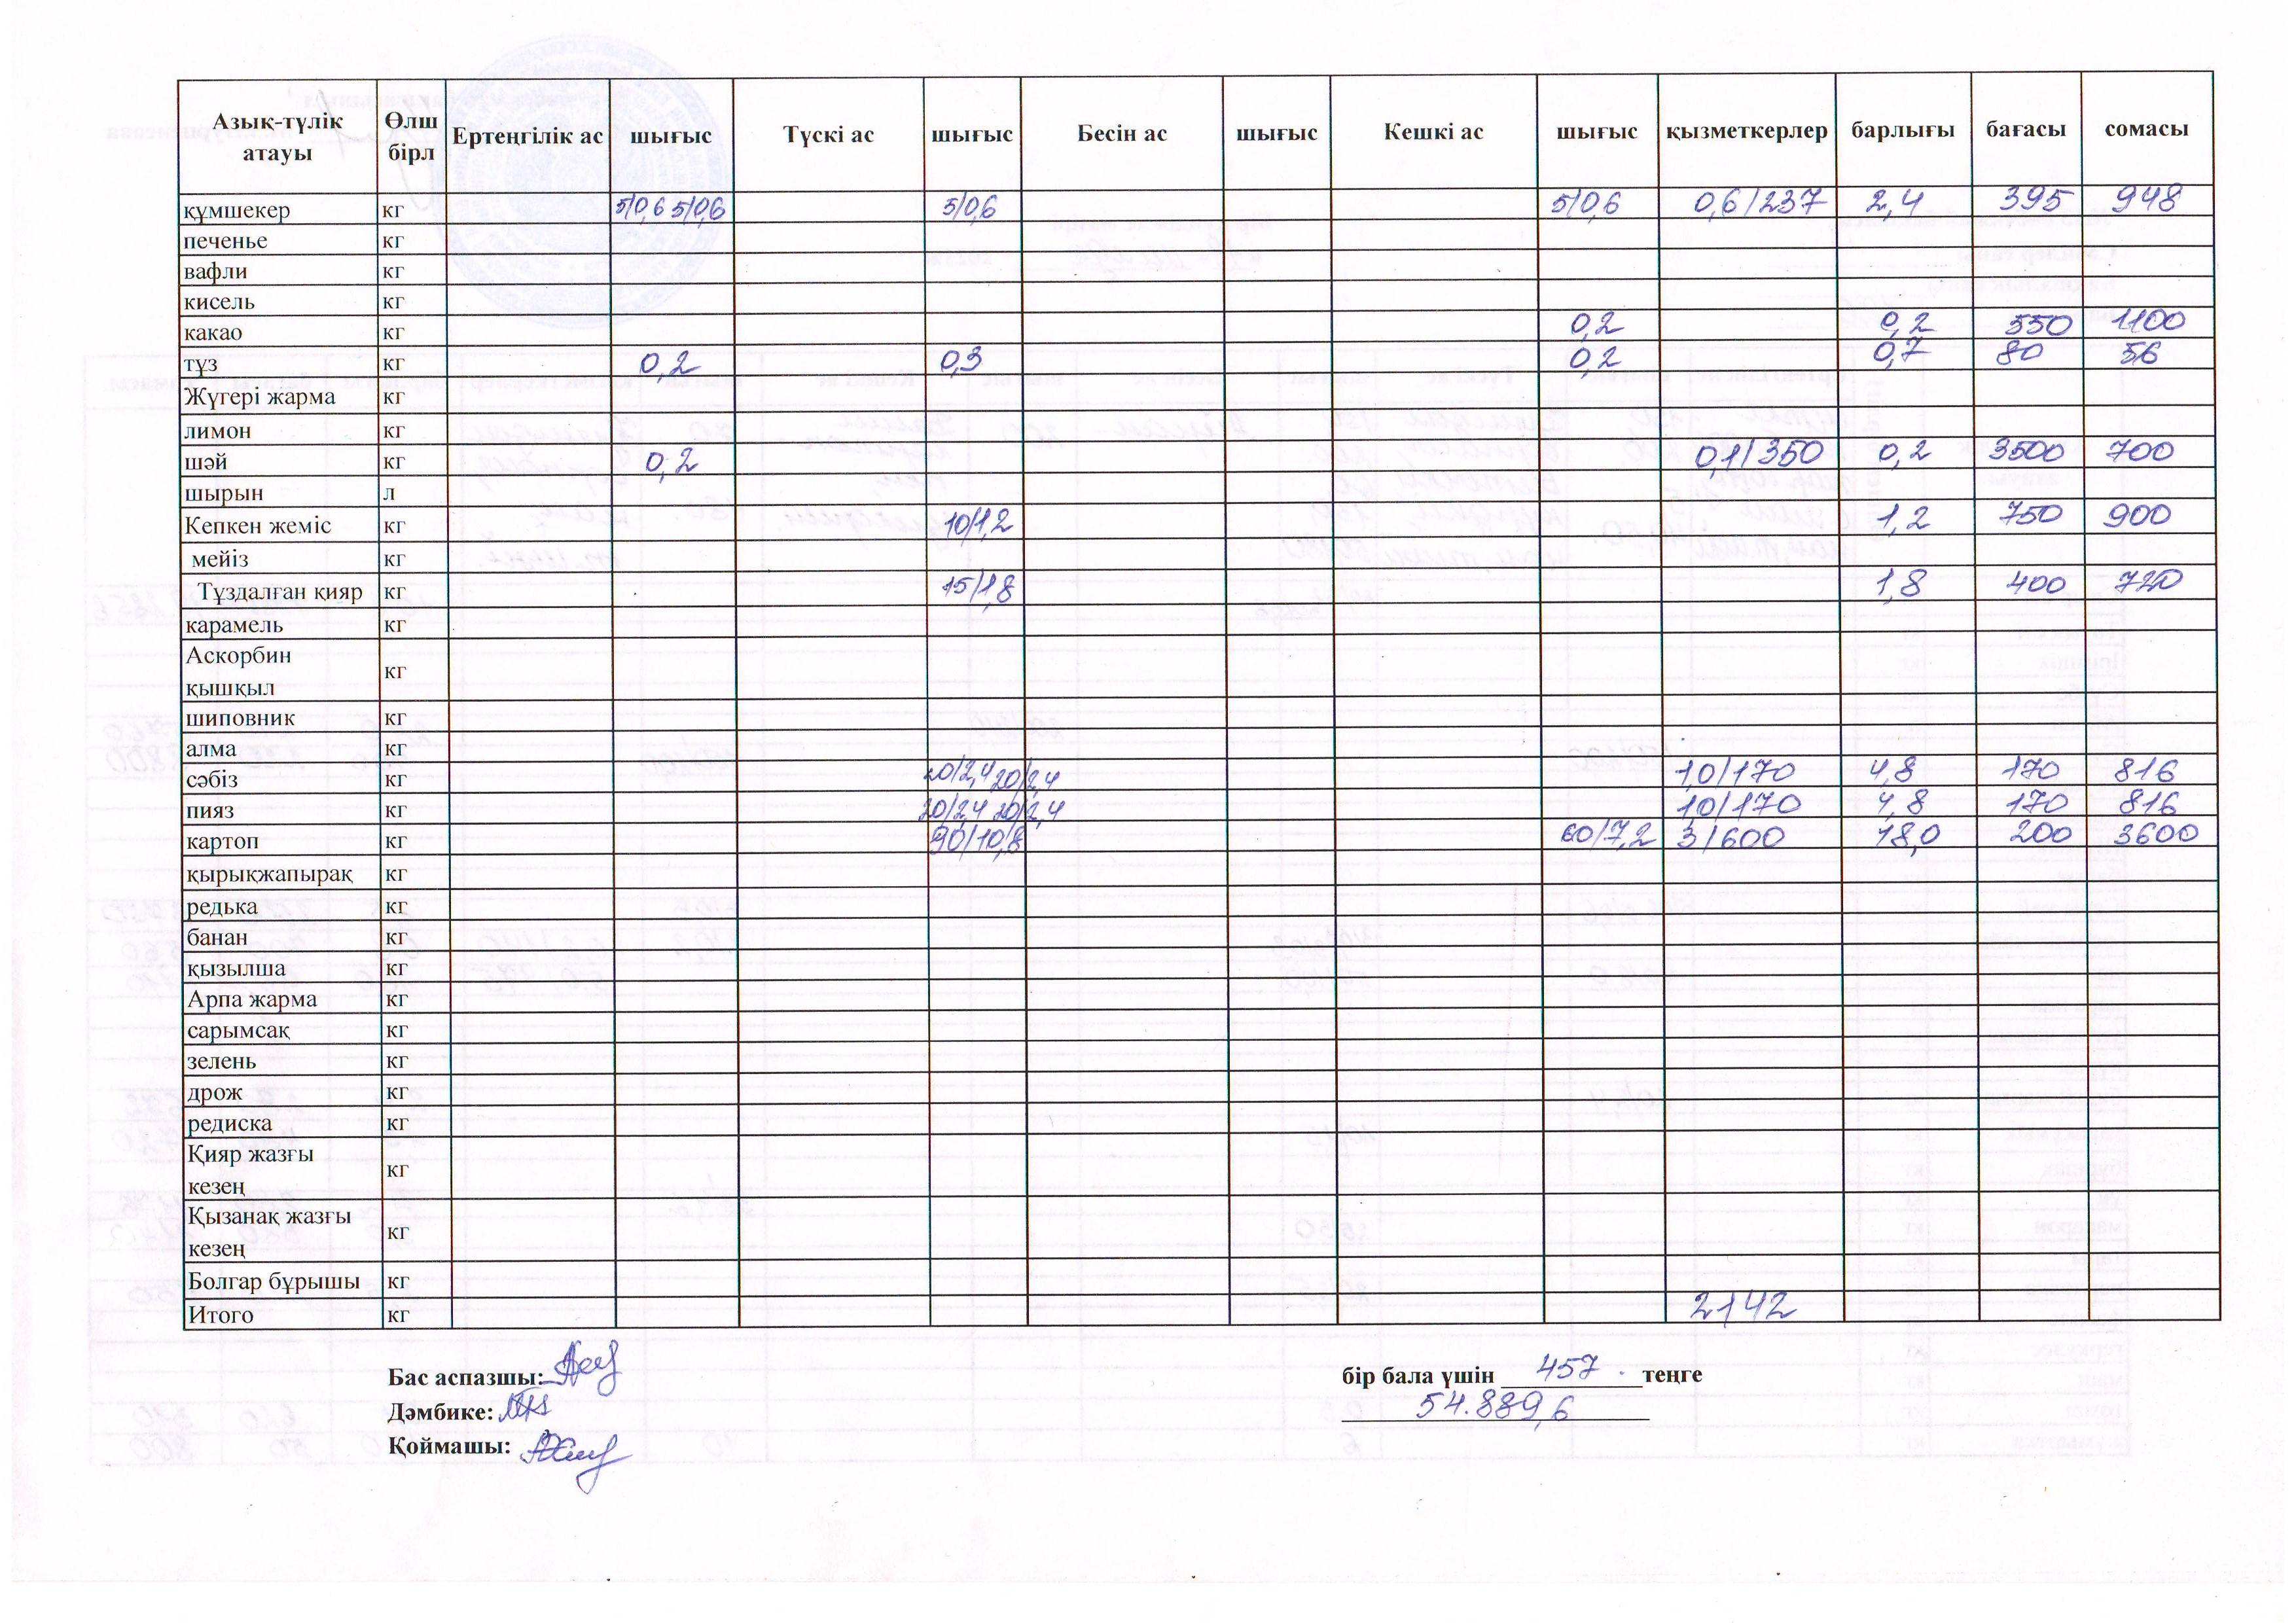 Азық-түлік атауы Өлш бірл Ертеңгілік ас шығыс Түскі ас шығыс Бесін ас шығыс Кешкі ас шығыс қызметкерлер барлығы бағасы сомасы
құмшекер кг 5/0,6 5/0,6 5/0,6 5/0,6 0,6/237 2,4 395 948
печенье кг
вафли кг
кисель кг
какао кг 0,2 0,2 550 1100
тұз кг 0,2 0,3 0,2 0,7 80 56
Жүгері жарма кг
лимон кг
шәй кг 0,2 0,1/350 0,2 3500 700
шырын л
Кепкен жеміс кг 10/1,2 1,2 750 900
мейіз кг
Тұздалған қияр кг 15/1,8 1,8 400 720
карамель кг
Аскорбин қышқыл кг
шиповник кг
алма кг
сәбіз кг 20/2,4 20/2,4 1,0/170 4,8 170 816
пияз кг 20/2,4 20/2,4 1,0/170 4,8 170 816
картоп кг 90/10,8 60/7,2 3/600 18,0 200 3600
қырықжапырақ кг
редька кг
банан кг
қызылша кг
Арпа жарма кг
сарымсақ кг
зелень кг
дрож кг
редиска кг
Қияр жазғы кезең кг
Қызанақ жазғы кезең кг
Болгар бұрышы кг
Итого кг 2142
Бас аспазшы:
Дәмбике:
Қоймашы:
бір бала үшін 457 теңге
54.889,6